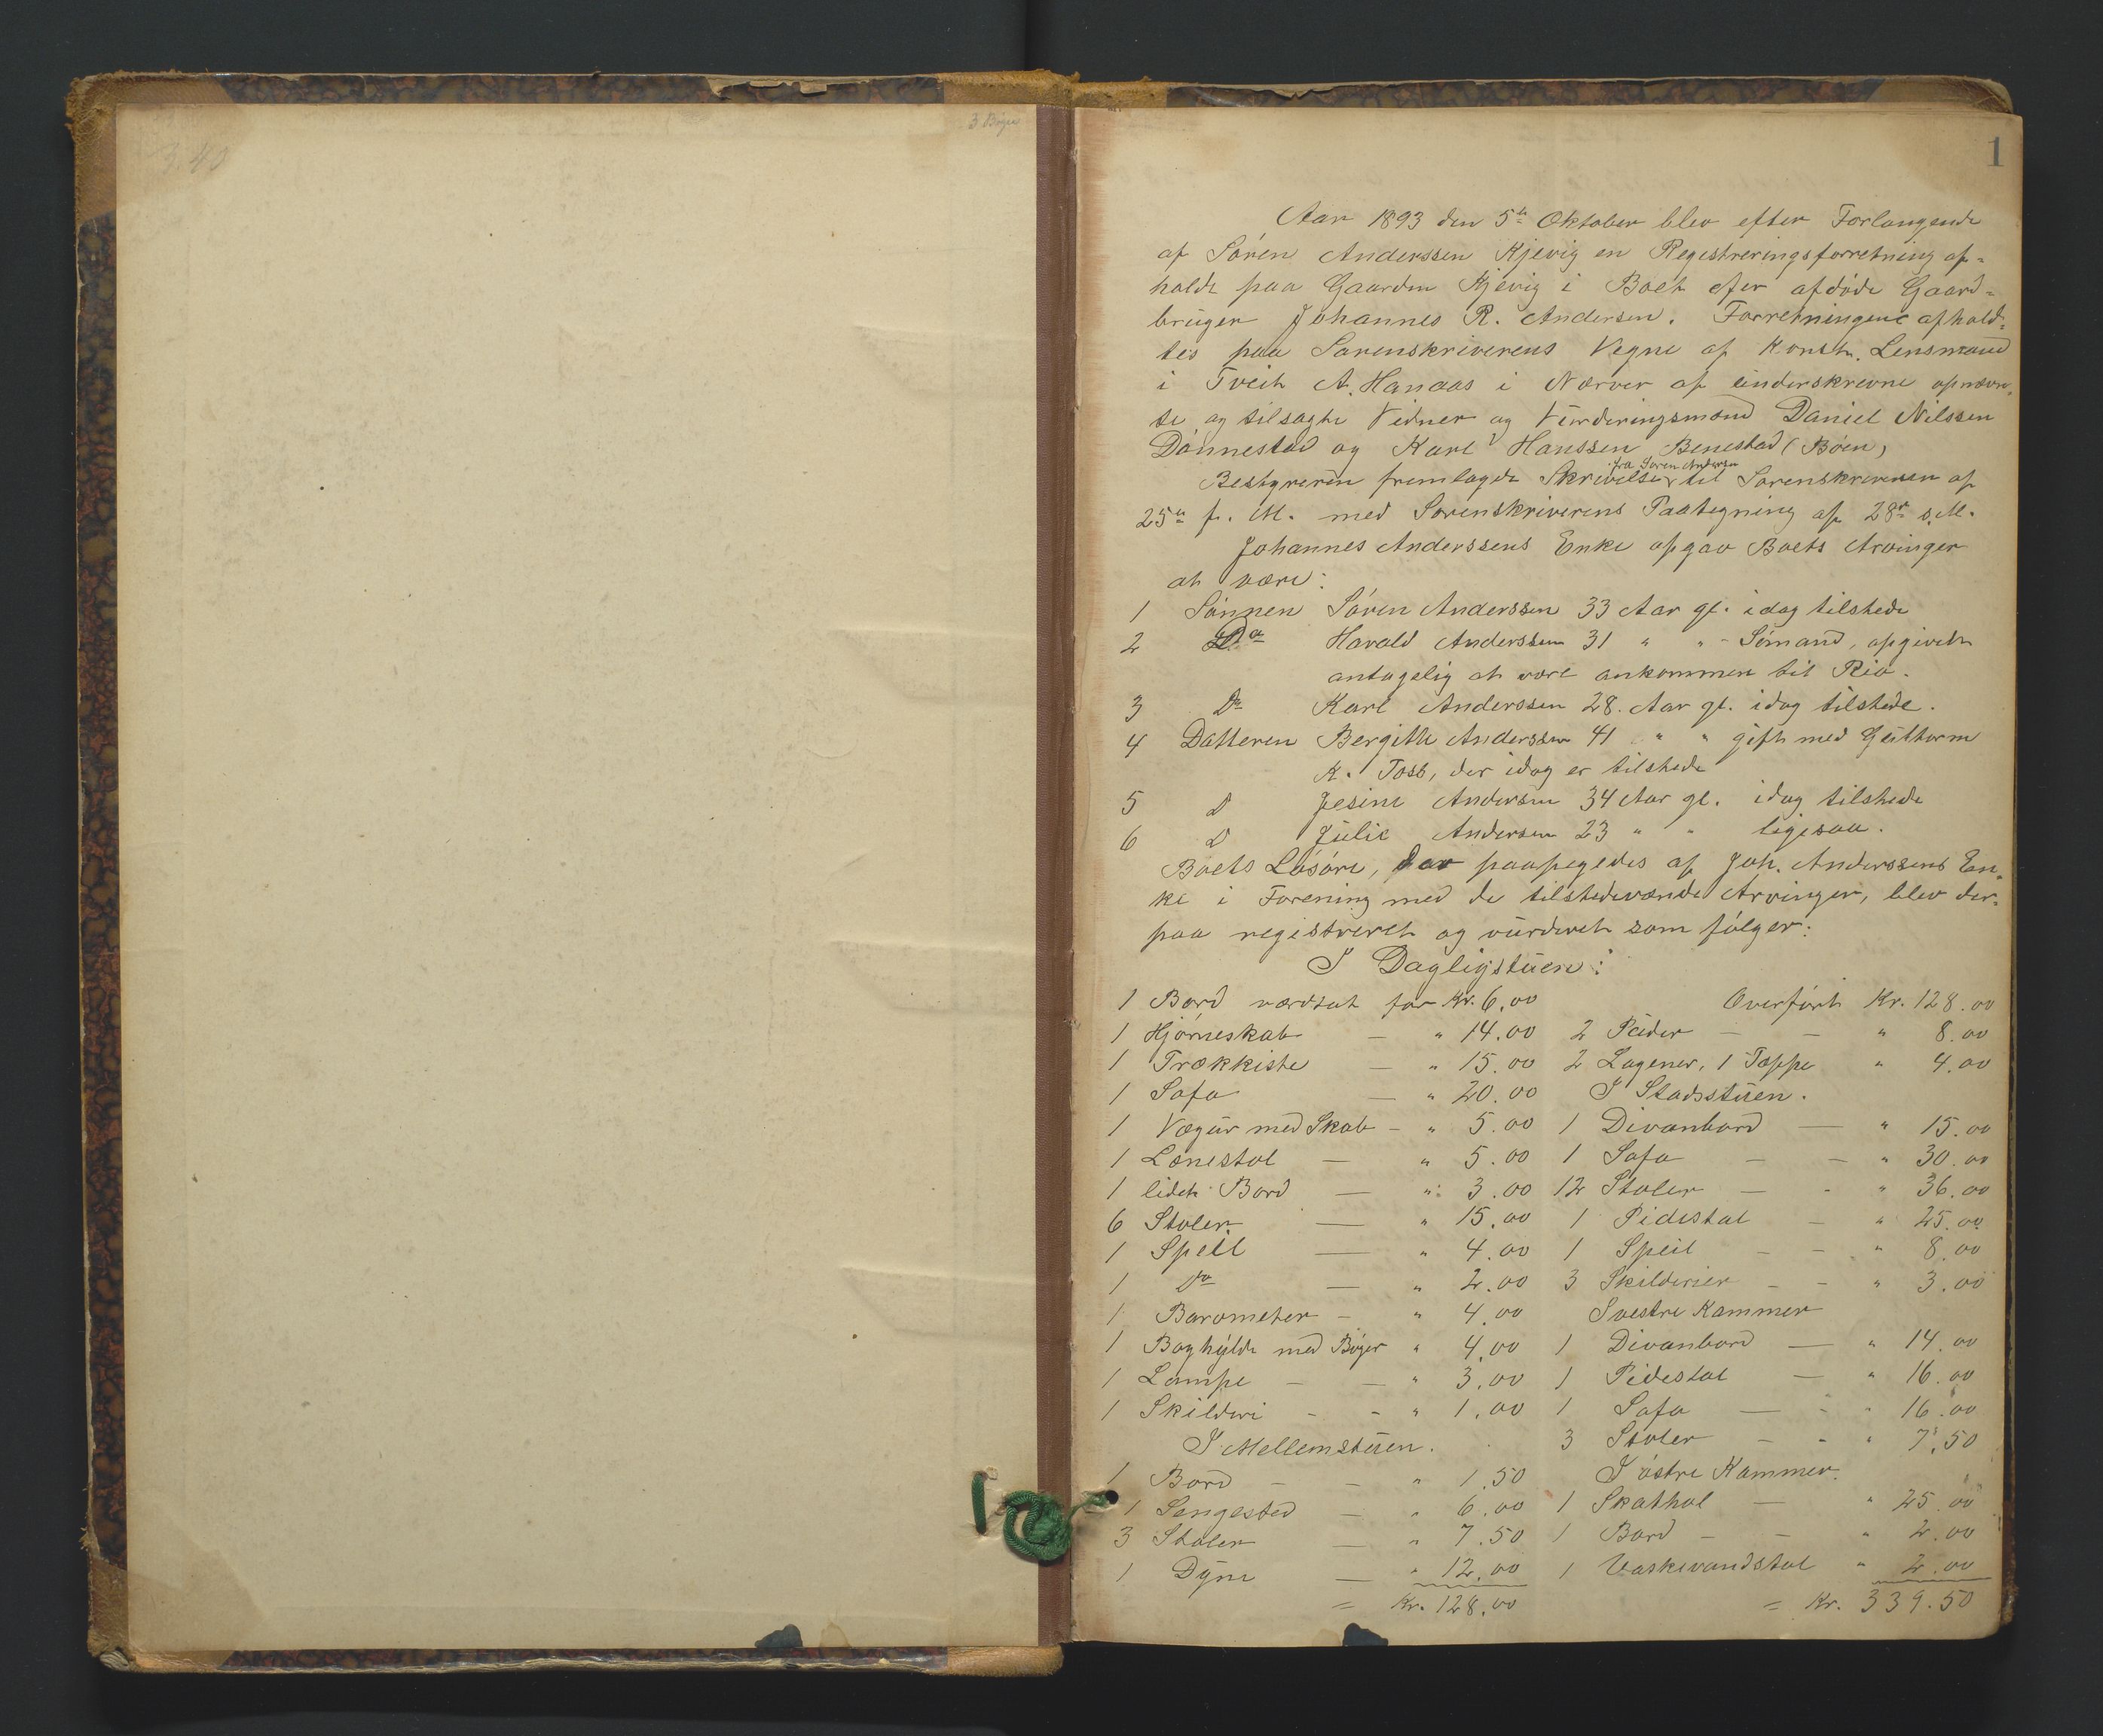 3.40
3 Bøger
1
Aar 1893 den 5te Oktober blev efter Forlangende
af Søren Anderssen Kjevig en Registreringsforretning af-
holdt paa Gaarden Kjevig i Boet efter afdøde Gaard-
bruger Johannes R. Andersen. Forretningene afhold-
tes paa Sorenskriverens Vegne af Konst. Lensmand
i Tveit A. Hanaas i Nærvær af underskrevne opnævn-
te og tilsagte Vidner og Vurderingsmænd Daniel Nilssen
Dønnestad og Karl Hanssen Benestad (Bøen)
fra Søren Andersen
Bestyreren fremlagde Skrivelse til Sorenskriveren af
25de f. M. med Sorenskriverens Paategning af 28de s.M.
Johannes Anderssens Enke opgav Boets Arvinger
at være:
1 Sønnen Søren Anderssen 33 Aar gl. idag tilstede
2 Do Harald Anderssen 31 " " - Sømand, opgivet
antagelig at være ankommen til Rio.
3 Do Karl Anderssen 28 Aar gl. idag tilstede.
4 Datteren Bergitte Anderssen 41 " " gift med Guttorm
K. Foss, der idag er tilstede
5 D Jesine Andersen 34 Aar gl. idag tilstede
6 D Julie Andersen 23 " " ligesaa.
Boets Løsøre, der paapegedes af Joh. Anderssens En-
ke i Forening med de tilstedeværende Arvinger, blev der-
paa registreret og vurderet som følger:
I Dagligstuen:
1 Bord værdsat for Kr. 6.00 Overført Kr. 128.00
1 Hjørneskab — " 14.00 2 Puder — — " 8.00
1 Trækkiste — " 15.00 2 Lagener, 1 Tæppe " 4.00
1 Sofa — " 20.00 I Stadsstuen.
1 Vægur med Skab - " 5.00 1 Divanbord — " 15.00
1 Lænestol — " 5.00 1 Sofa — — " 30.00
1 lidet Bord — " 3.00 12 Stoler — - " 36.00
6 Stoler — " 15.00 1 Pidestal — " 25.00
1 Speil — " 4.00 1 Speil - - " 8.00
1 Do — " 2.00 3 Skilderier - - " 3.00
1 Barometer - " 4.00 I vestre Kammer
1 Boghylde med Bøger " 4.00 1 Divanbord — " 14.00
1 Lampe - — " 3.00 1 Pidestal — " 16.00
1 Skilderi - - " 1.00 1 Sofa — - " 16.00
I Mellemstuen. 3 Stoler - - " 7.50
1 Bord - - " 1.50 I østre Kammer.
1 Sengested — " 6.00 1 Skathol — " 25.00
3 Stoler — " 7.50 1 Bord - - " 2.00
1 Dyne — " 12.00 1 Vaskevandstol " 2.00
= Kr. 128.00 = Kr. 339.50